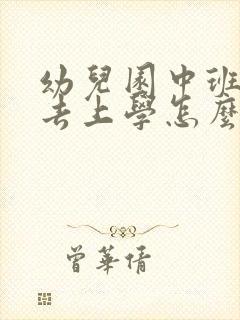 幼兒園中班
去上學怎麼
曾華倩